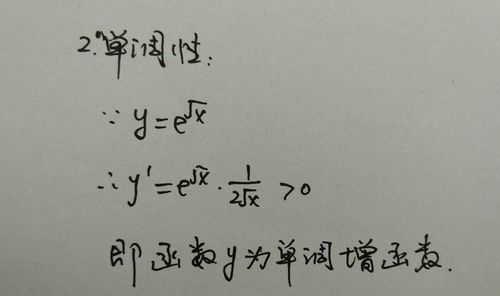 2.单调性:
∵ y=e^√x
∴ y'=e^√x · 1/(2√x) >0
即函数y为单调增函数.